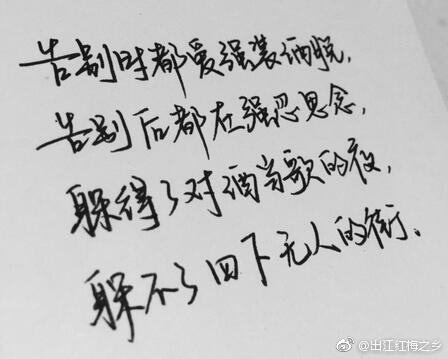 告别时都爱强装洒脱，
告别后都在强忍思念，
躲得了对酒当歌的夜，
躲不了四下无人的街。
@出江红梅之乡